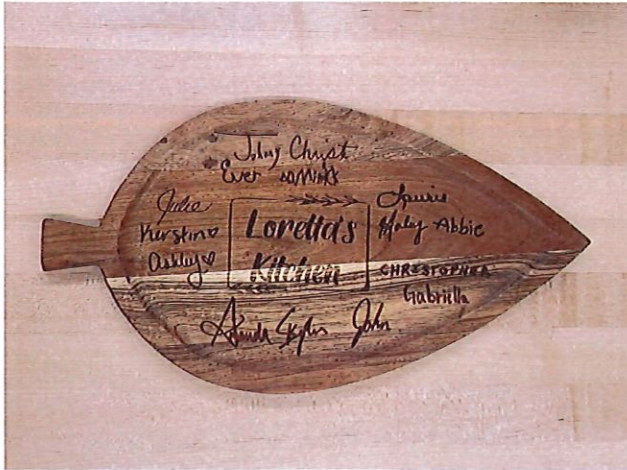 Johny Christ
Ever
Julie
Kerstin♡
Ashley♡
Loretta's
Kitchen
Laurie
Haley Abbie
CHRISTOPHER
Gabriella
Skyler John